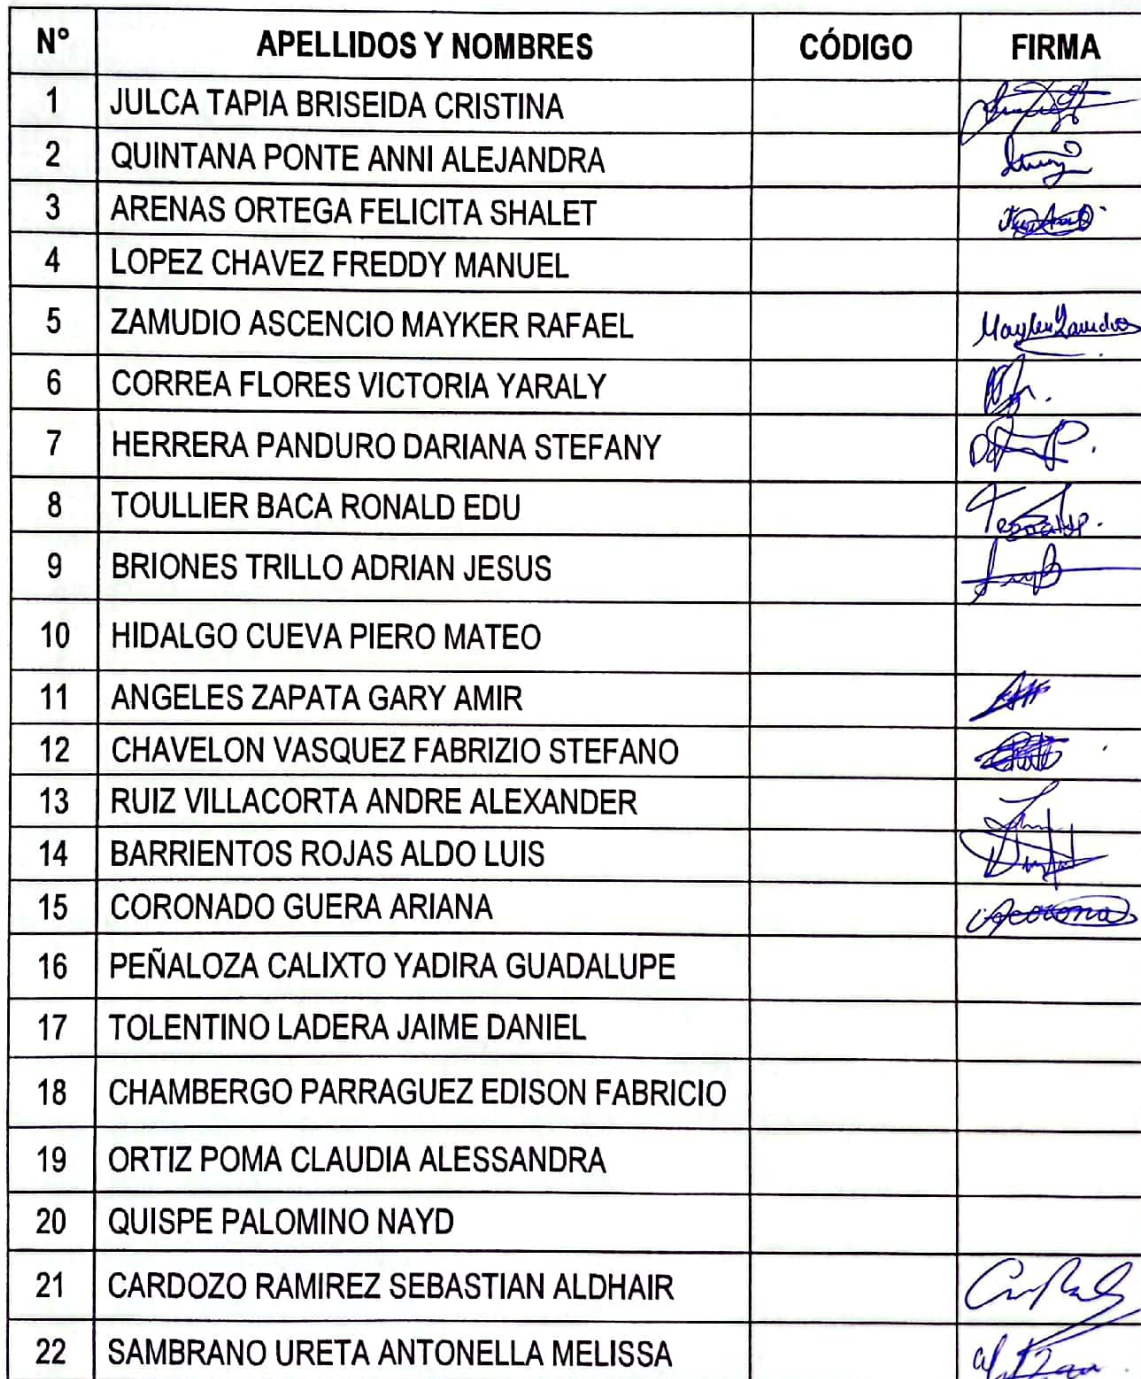 N° APELLIDOS Y NOMBRES CÓDIGO FIRMA
1 JULCA TAPIA BRISEIDA CRISTINA
2 QUINTANA PONTE ANNI ALEJANDRA
3 ARENAS ORTEGA FELICITA SHALET
4 LOPEZ CHAVEZ FREDDY MANUEL
5 ZAMUDIO ASCENCIO MAYKER RAFAEL
6 CORREA FLORES VICTORIA YARALY
7 HERRERA PANDURO DARIANA STEFANY
8 TOULLIER BACA RONALD EDU
9 BRIONES TRILLO ADRIAN JESUS
10 HIDALGO CUEVA PIERO MATEO
11 ANGELES ZAPATA GARY AMIR
12 CHAVELON VASQUEZ FABRIZIO STEFANO
13 RUIZ VILLACORTA ANDRE ALEXANDER
14 BARRIENTOS ROJAS ALDO LUIS
15 CORONADO GUERA ARIANA
16 PEÑALOZA CALIXTO YADIRA GUADALUPE
17 TOLENTINO LADERA JAIME DANIEL
18 CHAMBERGO PARRAGUEZ EDISON FABRICIO
19 ORTIZ POMA CLAUDIA ALESSANDRA
20 QUISPE PALOMINO NAYD
21 CARDOZO RAMIREZ SEBASTIAN ALDHAIR
22 SAMBRANO URETA ANTONELLA MELISSA